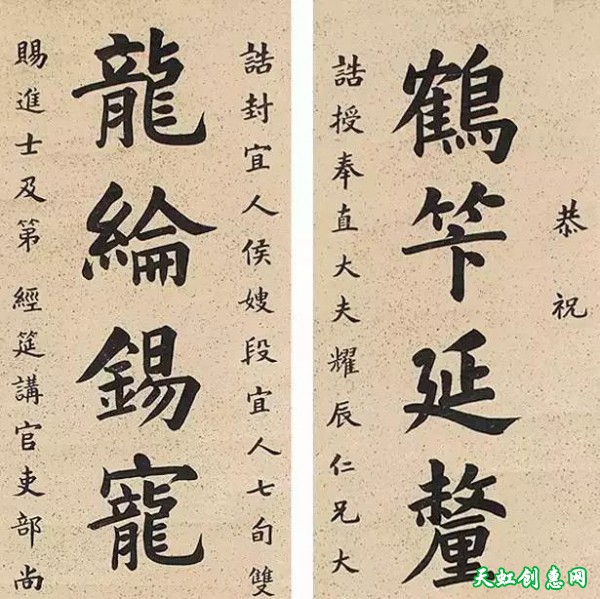 恭祝
鶴筭延釐
誥授奉直大夫耀辰仁兄大
誥封宜人侯嫂段宜人七旬雙
龍綸錫寵
賜進士及第經筵講官吏部尚
天虹创惠网